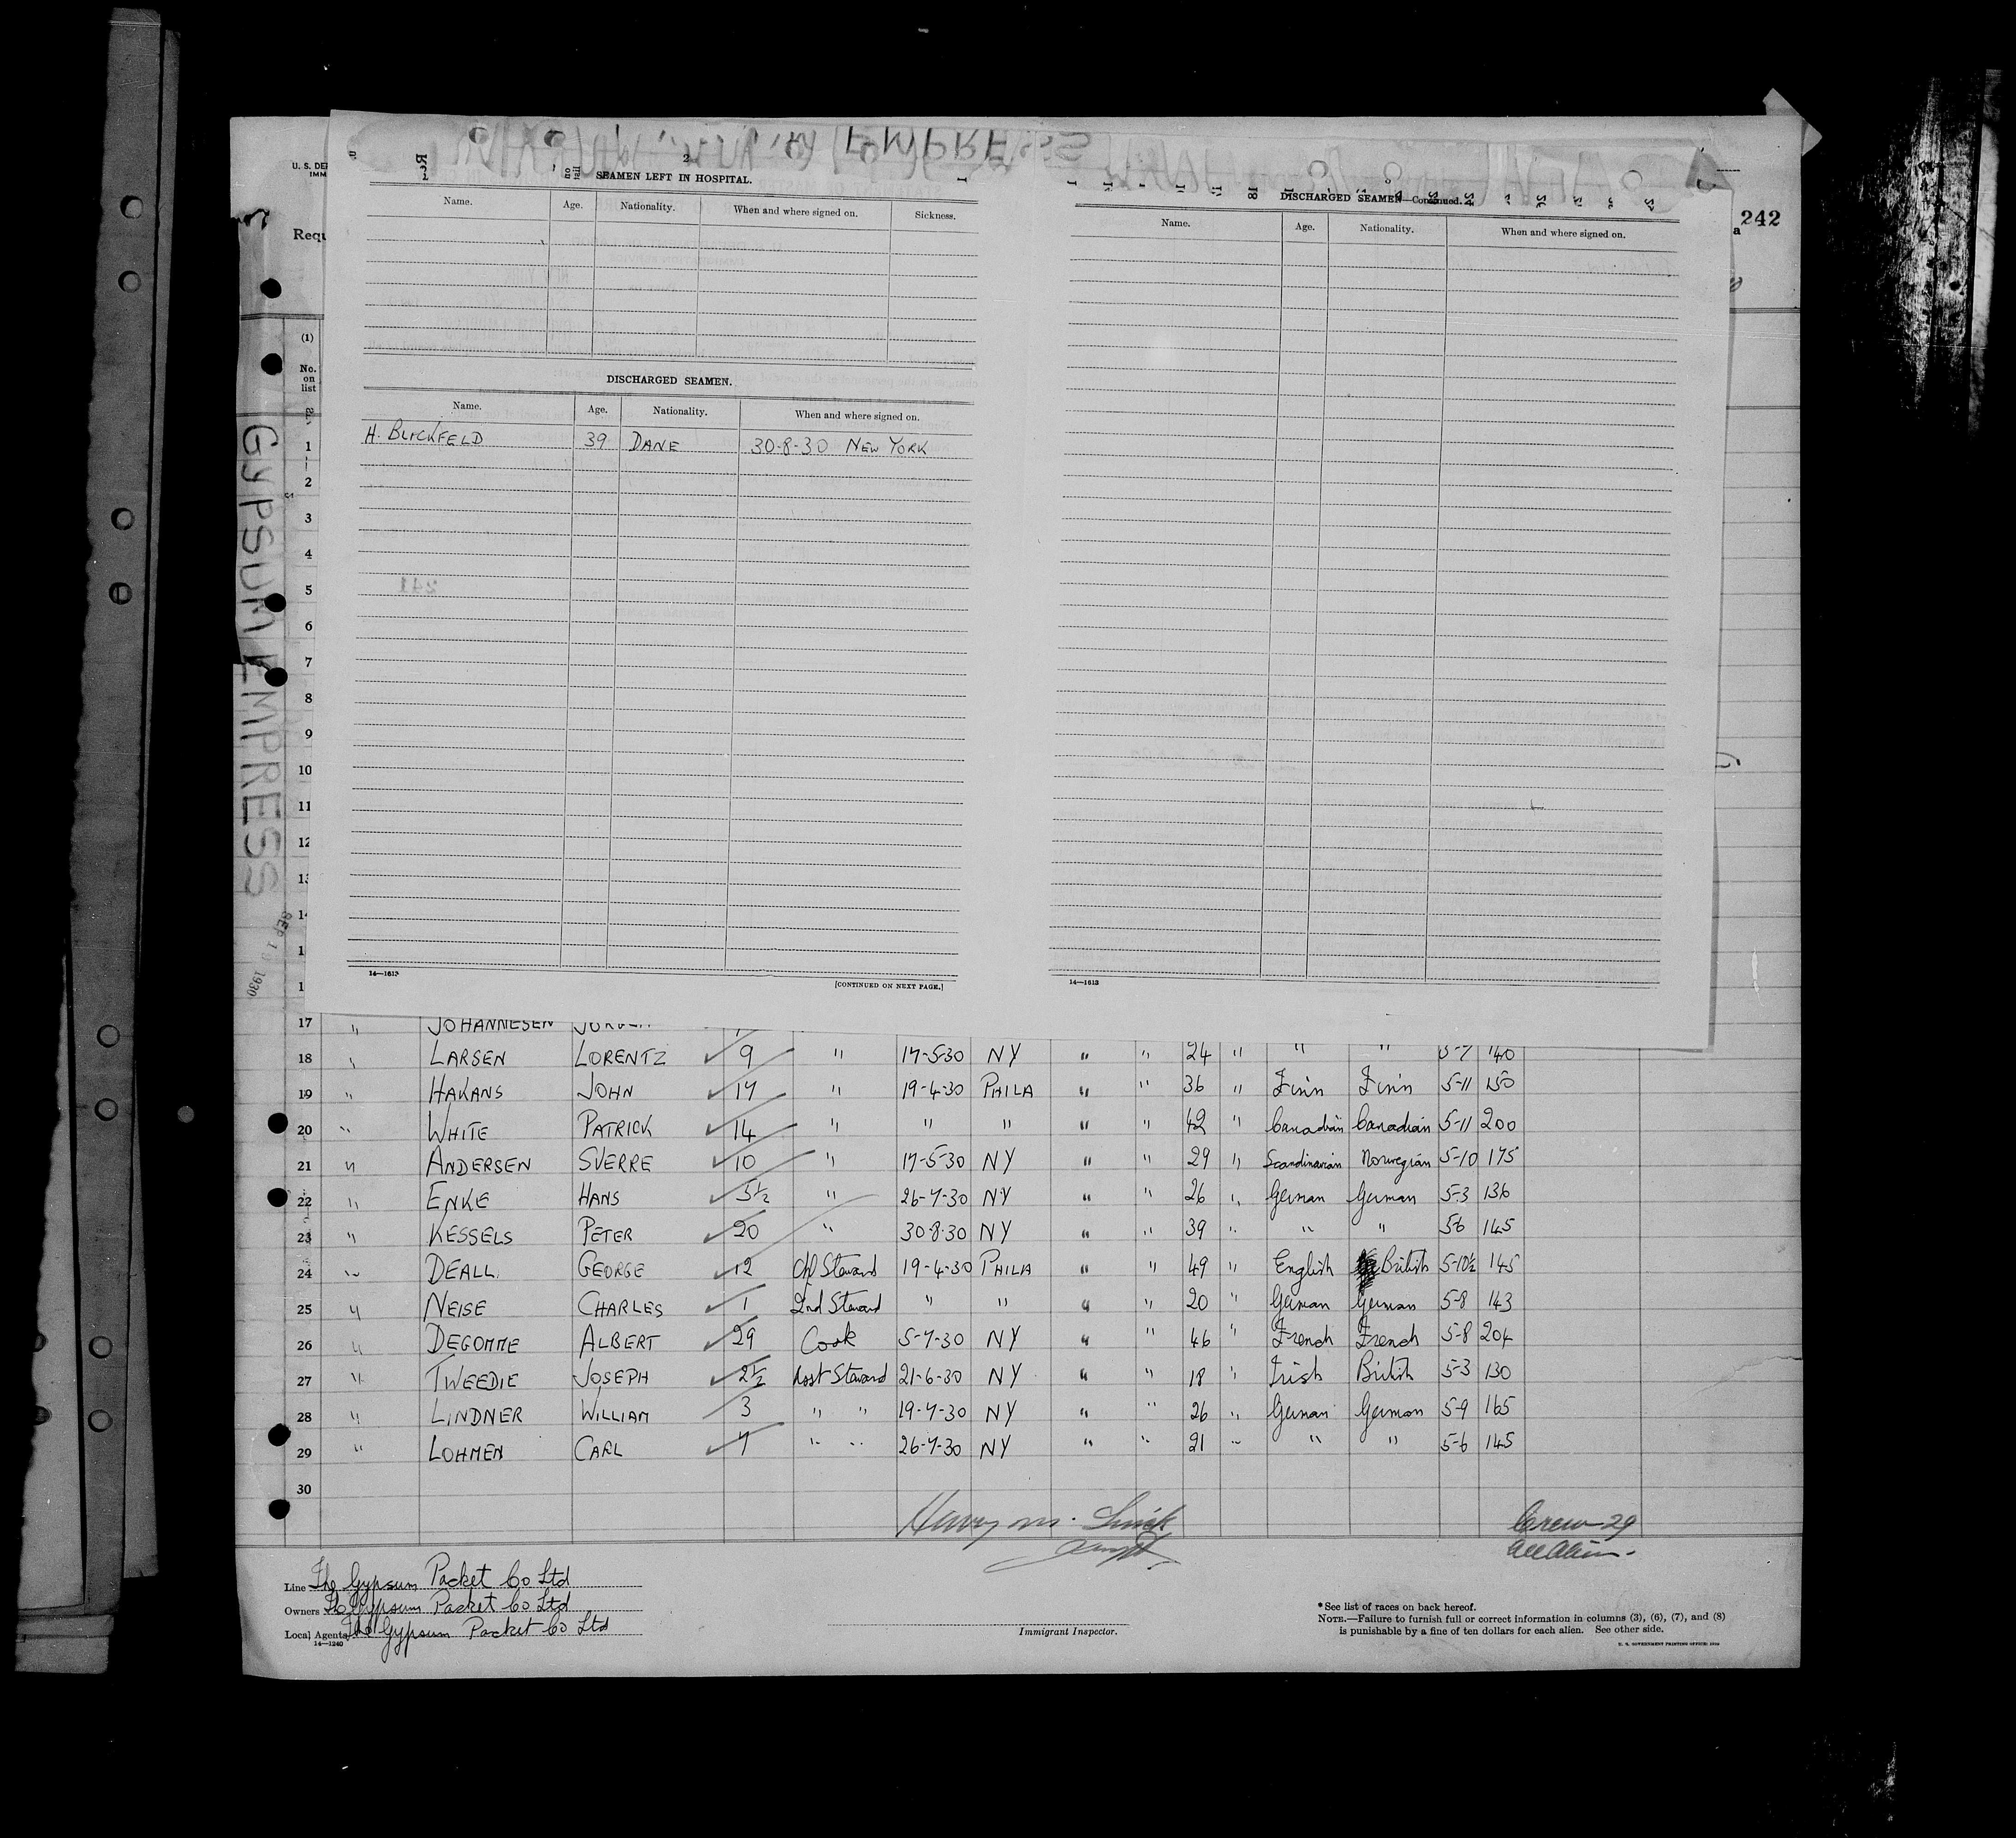 U. S. DE
IMM
Requ
242
a
2
SEAMEN LEFT IN HOSPITAL.
Name. Age. Nationality. When and where signed on. Sickness.
DISCHARGED SEAMEN.
Name. Age. Nationality. When and where signed on.
H. BLICKFELD 39 DANE 30-8-30 NEW YORK
14—1613
[CONTINUED ON NEXT PAGE.]
DISCHARGED SEAMEN—Continued.
Name. Age. Nationality. When and where signed on.
14—1613
GYPSUM EMPRESS
SEP 1 1930
(1)
No.
on
list
1
2
3
4
5
6
7
8
9
10
11
12
17 " JOHANNESEN
18 " LARSEN LORENTZ 9 " 17-5-30 NY " " 24 " " " 5-7 140
19 " HAKANS JOHN 17 " 19-4-30 PHILA " " 36 " Finn Finn 5-11 150
20 " WHITE PATRICK 14 " " " " " 42 " Canadian Canadian 5-11 200
21 " ANDERSEN SVERRE 10 " 17-5-30 NY " " 29 " Scandinavian Norwegian 5-10 175
22 " ENKE HANS 5½ " 26-7-30 NY " " 26 " German German 5-3 136
23 " KESSELS PETER 20 " 30-8-30 NY " " 39 " " " 5-6 145
24 " DEALL GEORGE 12 Chf Steward 19-4-30 PHILA " " 49 " English British 5-10½ 145
25 " NEISE CHARLES 1 2nd Steward " " " " 20 " German German 5-8 143
26 " DEGOMME ALBERT 29 Cook 5-7-30 NY " " 46 " French French 5-8 204
27 " TWEEDIE JOSEPH 2½ Asst Steward 21-6-30 NY " " 18 " Irish British 5-3 130
28 " LINDNER WILLIAM 3 " " 19-7-30 NY " " 26 " German German 5-9 165
29 " LOHMEN CARL 7 " " 26-7-30 NY " " 21 " " " 5-6 145
30
Harry M.
Crew 29
All Alien.
Line The Gypsum Packet Co Ltd
Owners The Gypsum Packet Co Ltd
Local Agents The Gypsum Packet Co Ltd
14—1240
Immigrant Inspector.
* See list of races on back hereof.
NOTE.—Failure to furnish full or correct information in columns (3), (6), (7), and (8)
is punishable by a fine of ten dollars for each alien. See other side.